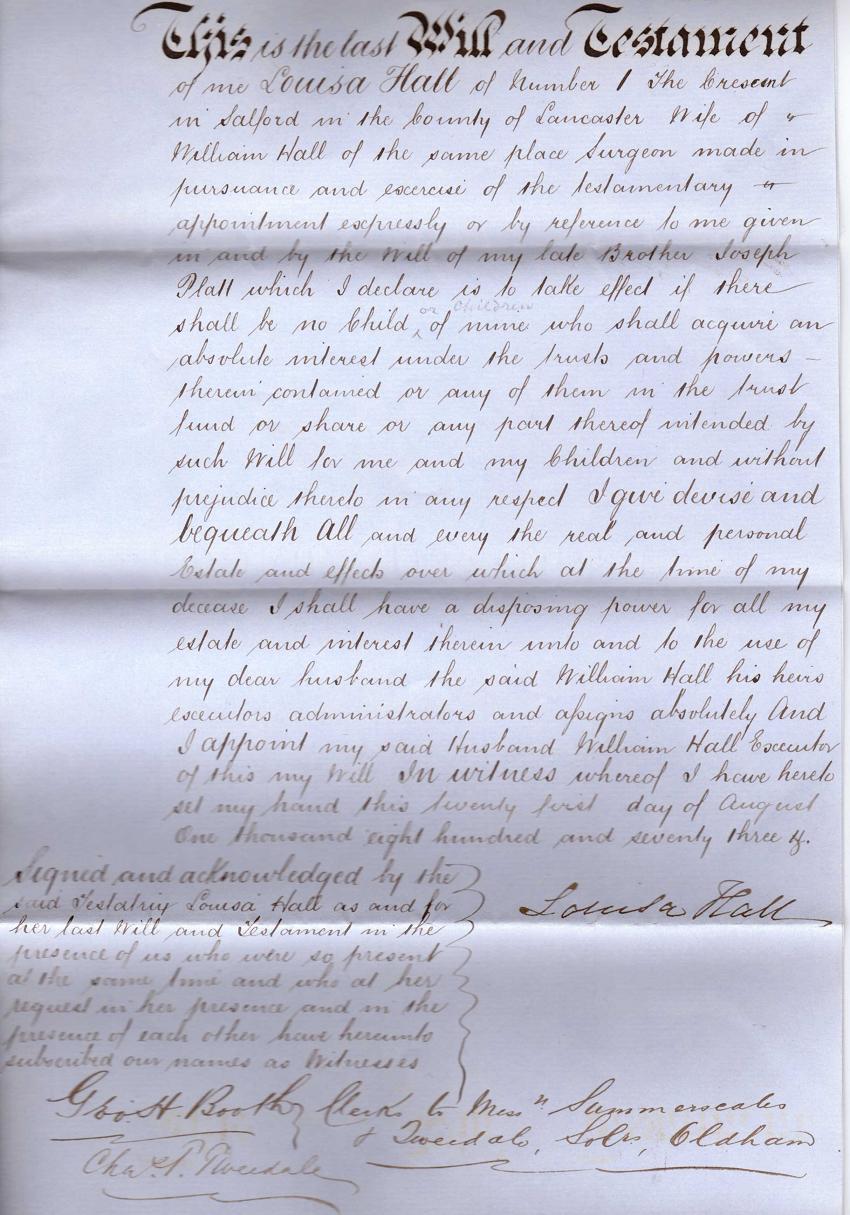 This is the last Will and Testament
of me Louisa Hall of Number 1 The Crescent
in Salford in the County of Lancaster Wife of "
William Hall of the same place Surgeon made in
pursuance and exercise of the testamentary "
appointment expressly or by reference to me given
in and by the Will of my late Brother Joseph
Platt which I declare is to take effect if there
or Children
shall be no Child ‸ of mine who shall acquire an
absolute interest under the trusts and powers –
therein contained or any of them in the trust
fund or share or any part thereof intended by
such Will for me and my Children and without
prejudice thereto in any respect I give devise and
bequeath All and every the real and personal
Estate and effects over which at the time of my
decease I shall have a disposing power for all my
estate and interest therein unto and to the use of
my dear husband the said William Hall his heirs
executors administrators and assigns absolutely And
I appoint my said Husband William Hall Executor
of this my Will In witness whereof I have hereto
set my hand this twenty first day of August
One thousand eight hundred and seventy three
Signed and acknowledged by the
said Testatrix Louisa Hall as and for
Louisa Hall
her last Will and Testament in the
presence of us who were so present
at the same time and who at her
request in her presence and in the
presence of each other have hereunto
subscribed our names as Witnesses
Geo. H. Booth Clerks to Mess" Summerscales
& Tweedale, Solrs, Oldham
Chas. P. Tweedale